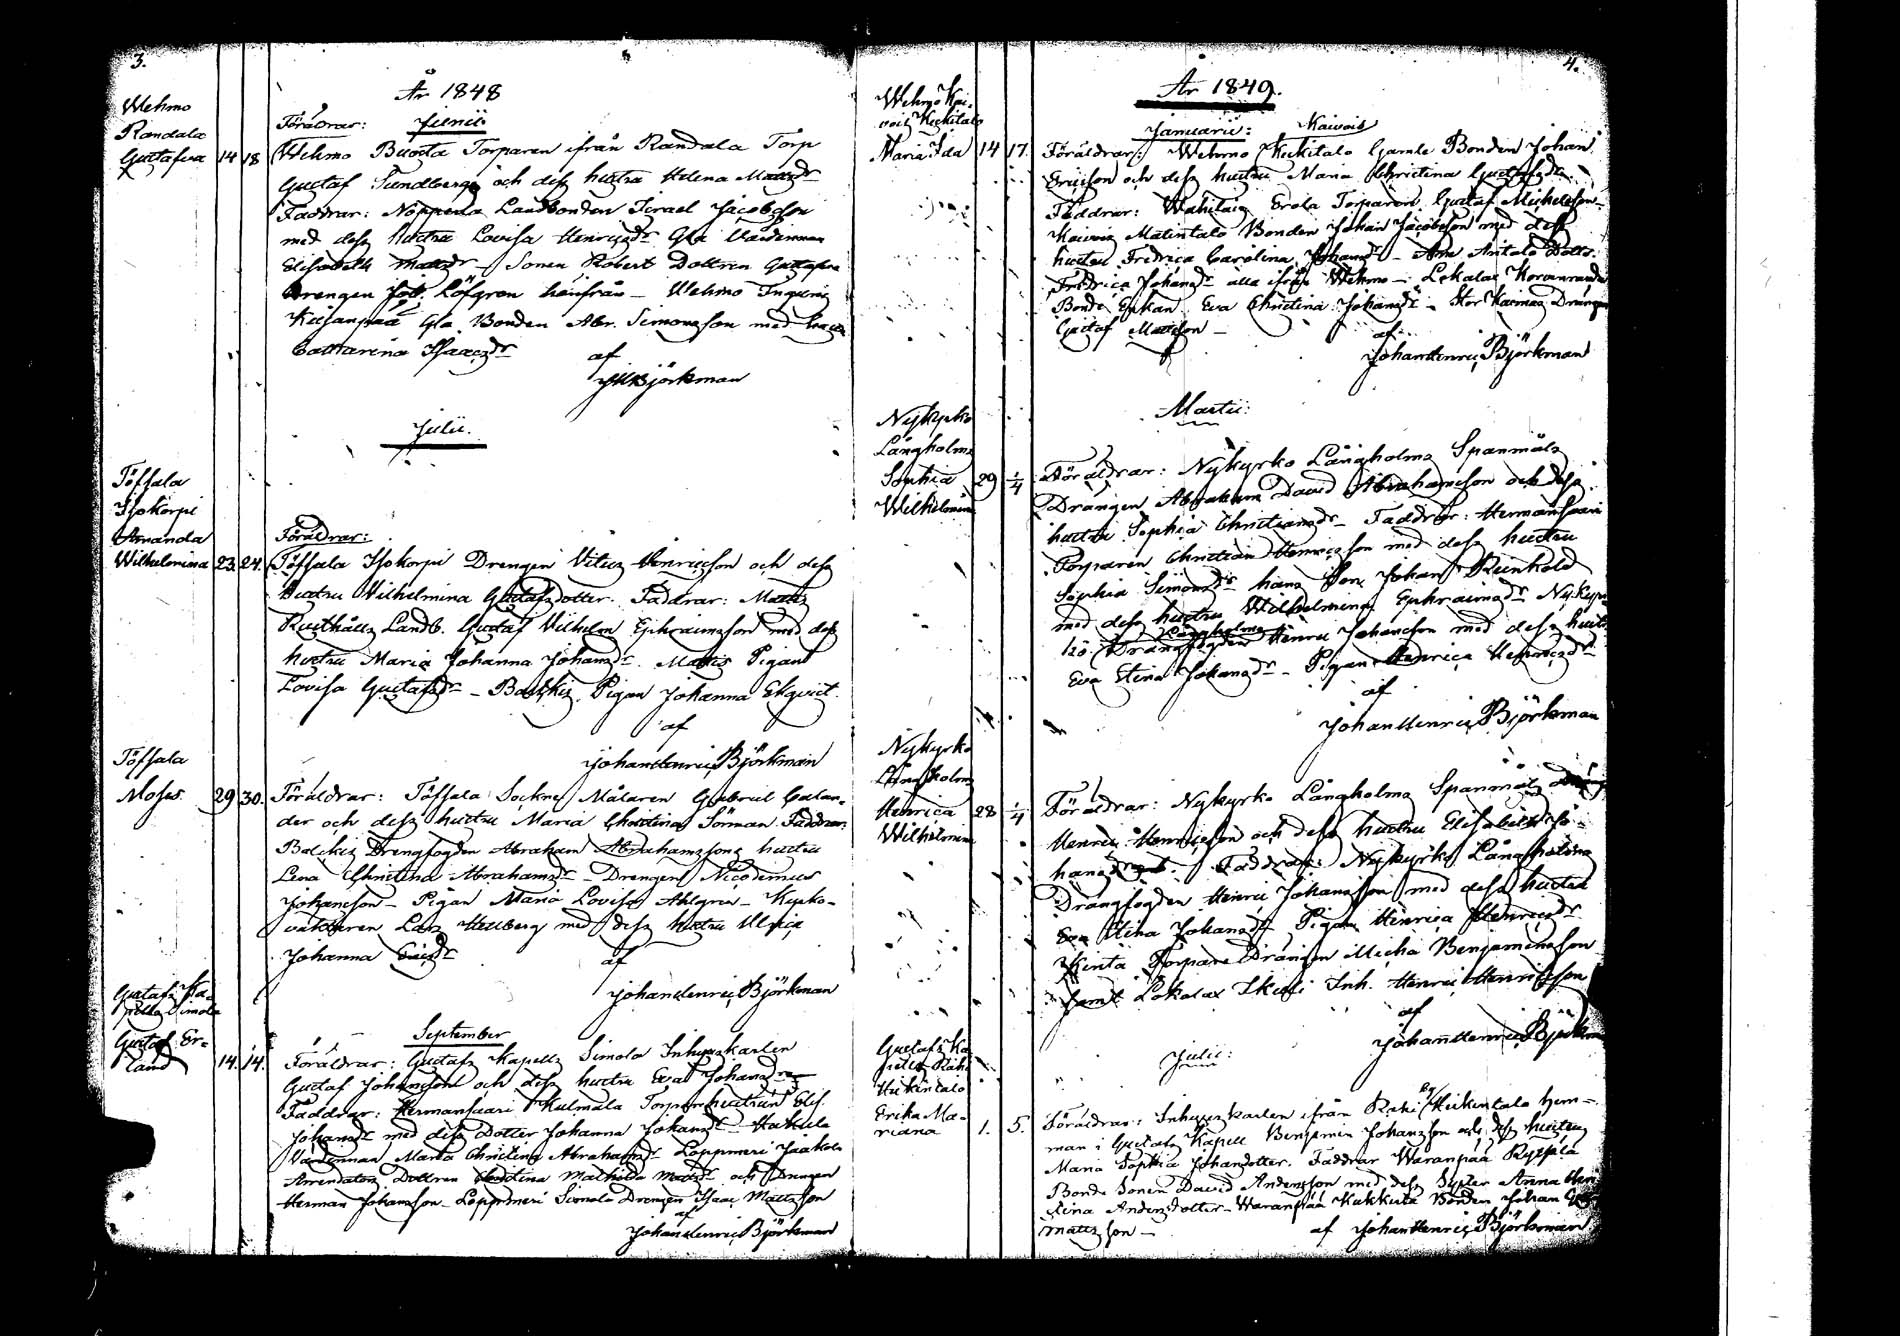 3.
År 1848
Wehmo
Randala
Gustafva 14 18
Föräldrar: Junii
Wehmo Buosta Torparen ifrån Randala Torp
Gustaf Sundberg och dess hustru Helena Mattsdr
Faddrar: Nopperla Landbonden Israel Jacobsson
med dess hustru Lovisa Henricsdr Gla Värdinnan
Elisabeth Mattsdr - Sonen Robert Dottren Gustafva
Drengen Joh. Löfgren härifrån - Wehmo
Gla Bonden Abr. Simonsson med hustru
Catharina Isaacsdr af
JHBjörkman
Julii.
Töfsala
Isokorpi
Amanda
Wilhelmina 23. 24.
Föräldrar:
Töfsala Isokorpi Drengen Vitus Henricsson och dess
hustru Wilhelmina Gustafsdotter. Faddrar:
Rusthålls Landb. Gustaf Vilhelm Ephraimsson med dess
hustru Maria Johanna Johansdr. Pigan
Lovisa Gustafsdr - Pigan Johanna Ekqvist.
af
Johan Henric Björkman
Töfsala
Moses. 29 30.
Föräldrar: Töfsala Sockne Målaren Gabriel Calan-
der och dess hustru Maria Christina Sörman Faddrar:
Drengfogden Abraham Abrahamssons hustru
Lena Christina Abrahamsdr - Drengen Nicodemus
Johansson - Pigan Maria Lovisa Ahlgren - Kyrko-
väktaren Lars Hellberg med dess hustru Ulrica
Johanna Ericsdr af
Johan Henric Björkman
Gustafs Ka-
pells Simola
Gustaf Er-
land 14. 14.
September
Föräldrar: Gustafs Kapells Simola Inhyseskarlen
Gustaf Johansson och dess hustru Eva Johansdr
Faddrar: Hermansaari Kulmala Torpare hustrun Elis.
Johansdr med dess Dotter Johanna Johansdr -
Värdinnan Maria Christina Abrahamsdr Loppmeri Jaakola
Arrendators Dottren Christina Mathilda Mattsdr och Drengen
Herman Johansson - Loppmeri Simola Drengen Isaac Mattsson
af
Johan Henric Björkman
4.
År 1849.
Wehmo Kai-
vois Keikitalo
Maria Ida 14 17.
Januarii: Kaivois
Föräldrar: Wehmo Keikitalo Gamle Bonden Johan
Ericsson och dess hustru Maria Christina Gustafsdr.
Faddrar: Erola Torparen Gustaf Michelsson -
Kaivois Matintalo Bonden Johan Jacobsson med dess
hustru Fredrica Carolina Johansdr - Antalo Dottr.
Fredrica Johansdr alla ifrån Wehmo - Lokalax
Bonde Enkan Eva Christina Johansdr - Stor Drängen
Gustaf Mattsson -
af
Johan Henric Björkman
Martii:
Nykyrko
Långholms
Sophia 29 1/4
Wilhelmina
Föräldrar: Nykyrko Långholms Spanmåls
Drängen Abraham David Abrahamsson och dess
hustru Sophia Christiansdr - Faddrar: Hermansaari
Torparen Christian Henricsson med dess hustru
Sophia Simonsdr hans Son Johan Reinhold
med dess hustru Wilhelmina Ephraimsdr Nykyr-
ko Långholms Drängfogden Henric Johansson med dess hustru
Eva Stina Johansdr - Pigan Henrica Henricsdr
af
Johan Henric Björkman
Nykyrko
Långholms
Henrica 28 1/4
Wilhelmina
Föräldrar: Nykyrko Långholms Spanmåls dräng
Henric Henricsson och dess hustru Elisabeth Jo-
hansdr. Faddrar: Nykyrko Långholms
Drängfogden Henric Johansson med dess hustru
Eva Stina Johansdr Pigan Henrica Henricsdr
Torpare Drängen Micha Benjaminsson
samt Lokalax Inh. Henric Henricsson
af
Johan Henric Björkman
Julii:
Gustafs Ka-
pells Rahi
Heikintalo
Erika Ma-
riana 1. 5.
Föräldrar: Inhyseskarlen ifrån Rahi Heikintalo hem-
man i Gustafs Kapell Benjamin Johansson och dess hustru
Maria Sophia Johansdotter. Faddrar Waranpää
Bonde Sonen David Andersson med dess Syster Anna Chris-
tina Andersdotter - Waranpää Kakkuta Bonden Johan
Mattsson - af Johan Henric Björkman